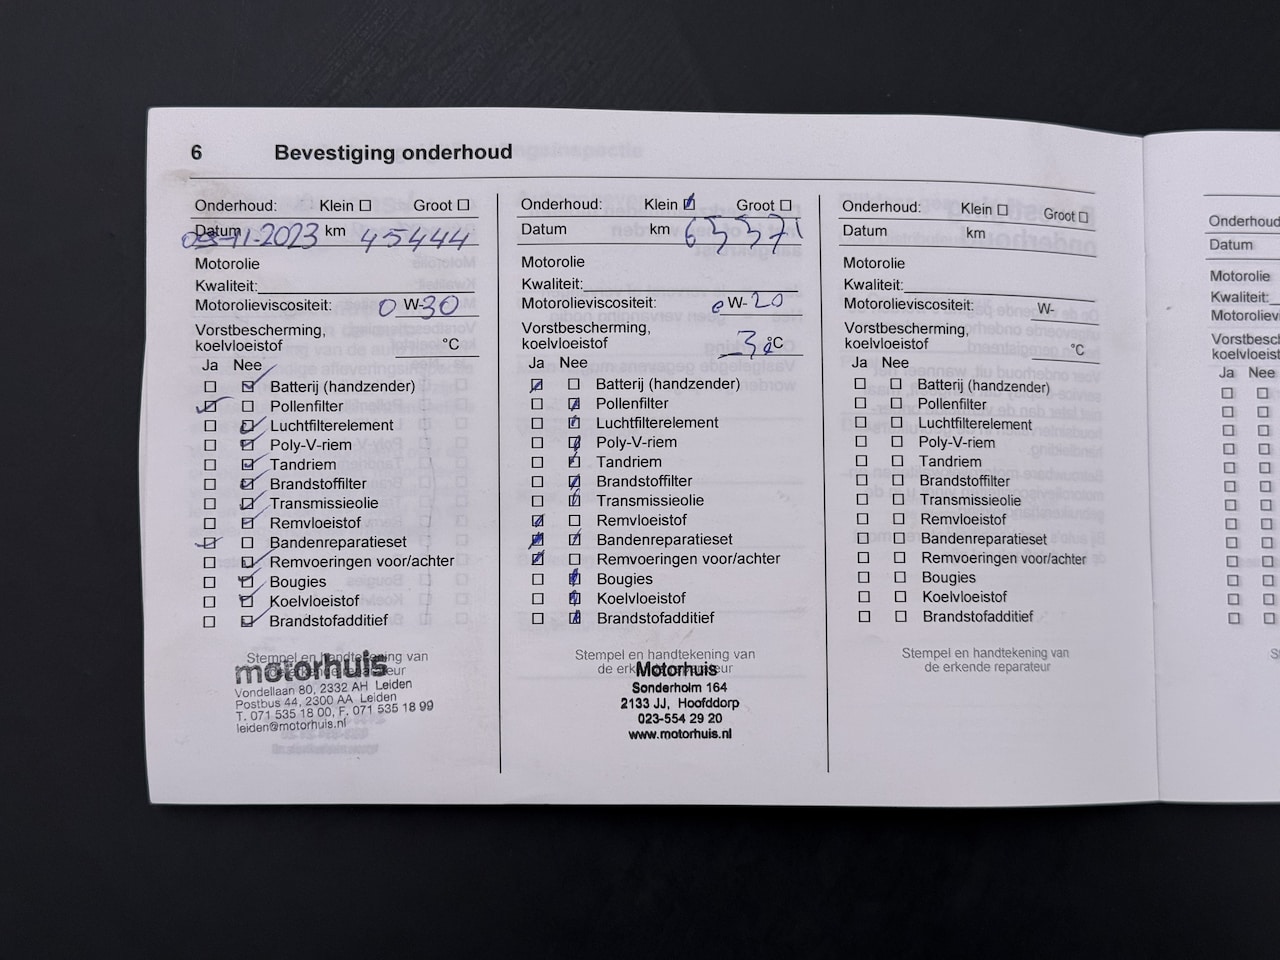 6 Bevestiging onderhoud
Onderhoud: Klein Groot
Datum 09-11-2023 km 45444
Motorolie
Kwaliteit:
Motorolieviscositeit: 0 W-30
Vorstbescherming,
koelvloeistof °C
Ja Nee
Batterij (handzender)
Pollenfilter
Luchtfilterelement
Poly-V-riem
Tandriem
Brandstoffilter
Transmissieolie
Remvloeistof
Bandenreparatieset
Remvoeringen voor/achter
Bougies
Koelvloeistof
Brandstofadditief
Stempel en handtekening van
de erkende reparateur
motorhuis
Vondellaan 80, 2332 AH Leiden
Postbus 44, 2300 AA Leiden
T. 071 535 18 00, F. 071 535 18 99
leiden@motorhuis.nl
Onderhoud: Klein Groot
Datum km 65371
Motorolie
Kwaliteit:
Motorolieviscositeit: 0 W-20
Vorstbescherming,
koelvloeistof -30 °C
Ja Nee
Batterij (handzender)
Pollenfilter
Luchtfilterelement
Poly-V-riem
Tandriem
Brandstoffilter
Transmissieolie
Remvloeistof
Bandenreparatieset
Remvoeringen voor/achter
Bougies
Koelvloeistof
Brandstofadditief
Stempel en handtekening van
de erkende reparateur
Motorhuis
Sonderholm 164
2133 JJ, Hoofddorp
023-554 29 20
www.motorhuis.nl
Onderhoud: Klein Groot
Datum km
Motorolie
Kwaliteit:
Motorolieviscositeit: W-
Vorstbescherming,
koelvloeistof °C
Ja Nee
Batterij (handzender)
Pollenfilter
Luchtfilterelement
Poly-V-riem
Tandriem
Brandstoffilter
Transmissieolie
Remvloeistof
Bandenreparatieset
Remvoeringen voor/achter
Bougies
Koelvloeistof
Brandstofadditief
Stempel en handtekening van
de erkende reparateur
Onderhoud
Datum
Motorolie
Kwaliteit:
Motorolievi
Vorstbesch
koelvloeisto
Ja Nee